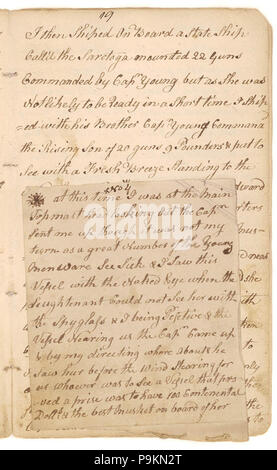 49
I then Shiped On Board a State Ship
Call'd the Saretoga mounted 22 Guns
Commanded by Capn Young but as She was
Not likely to be Ready in a Short time I Ship
=ed with his Brother Capn Young Command
the Rising Son of 20 guns 9 Pounders & put to
See with a Fresh Breeze Standing to the
No 4
* at this time I was at the main
Topmast head looking out the Capn
Sent me up though it was not my
turn as a great Number of the Young
men ware See Sick & I Saw this
Vesel with the Naked Eye when the
Leughtenant Could not See her with
the Spyglass & I being Positive & the
Vesel Nearing us the Capn Came up
& by my directing where abouts he
Saw hur before the Wind Stearing for
us Whoever was to See a Vesel that pro
=ved a prise was to have 100 Contenental
Dolls & the best musket on board of her
alamy
Image ID: P9KN2T
www.alamy.com